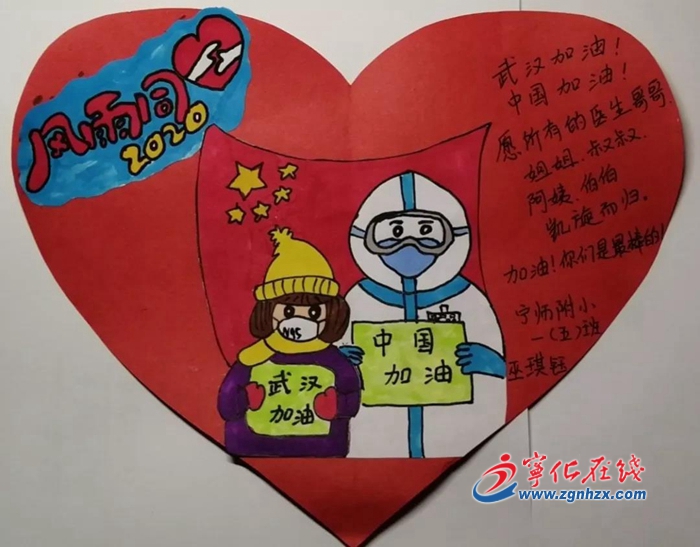 风雨同
2020
武汉加油！
中国加油！
愿所有的医生哥哥.
姐姐.叔叔.
阿姨.伯伯
凯旋而归。
加油！你们是最棒的！
宁师附小
一(五)班
巫琪钰
N95
武汉
加油
中国
加油
宁化在线
www.zgnhzx.com